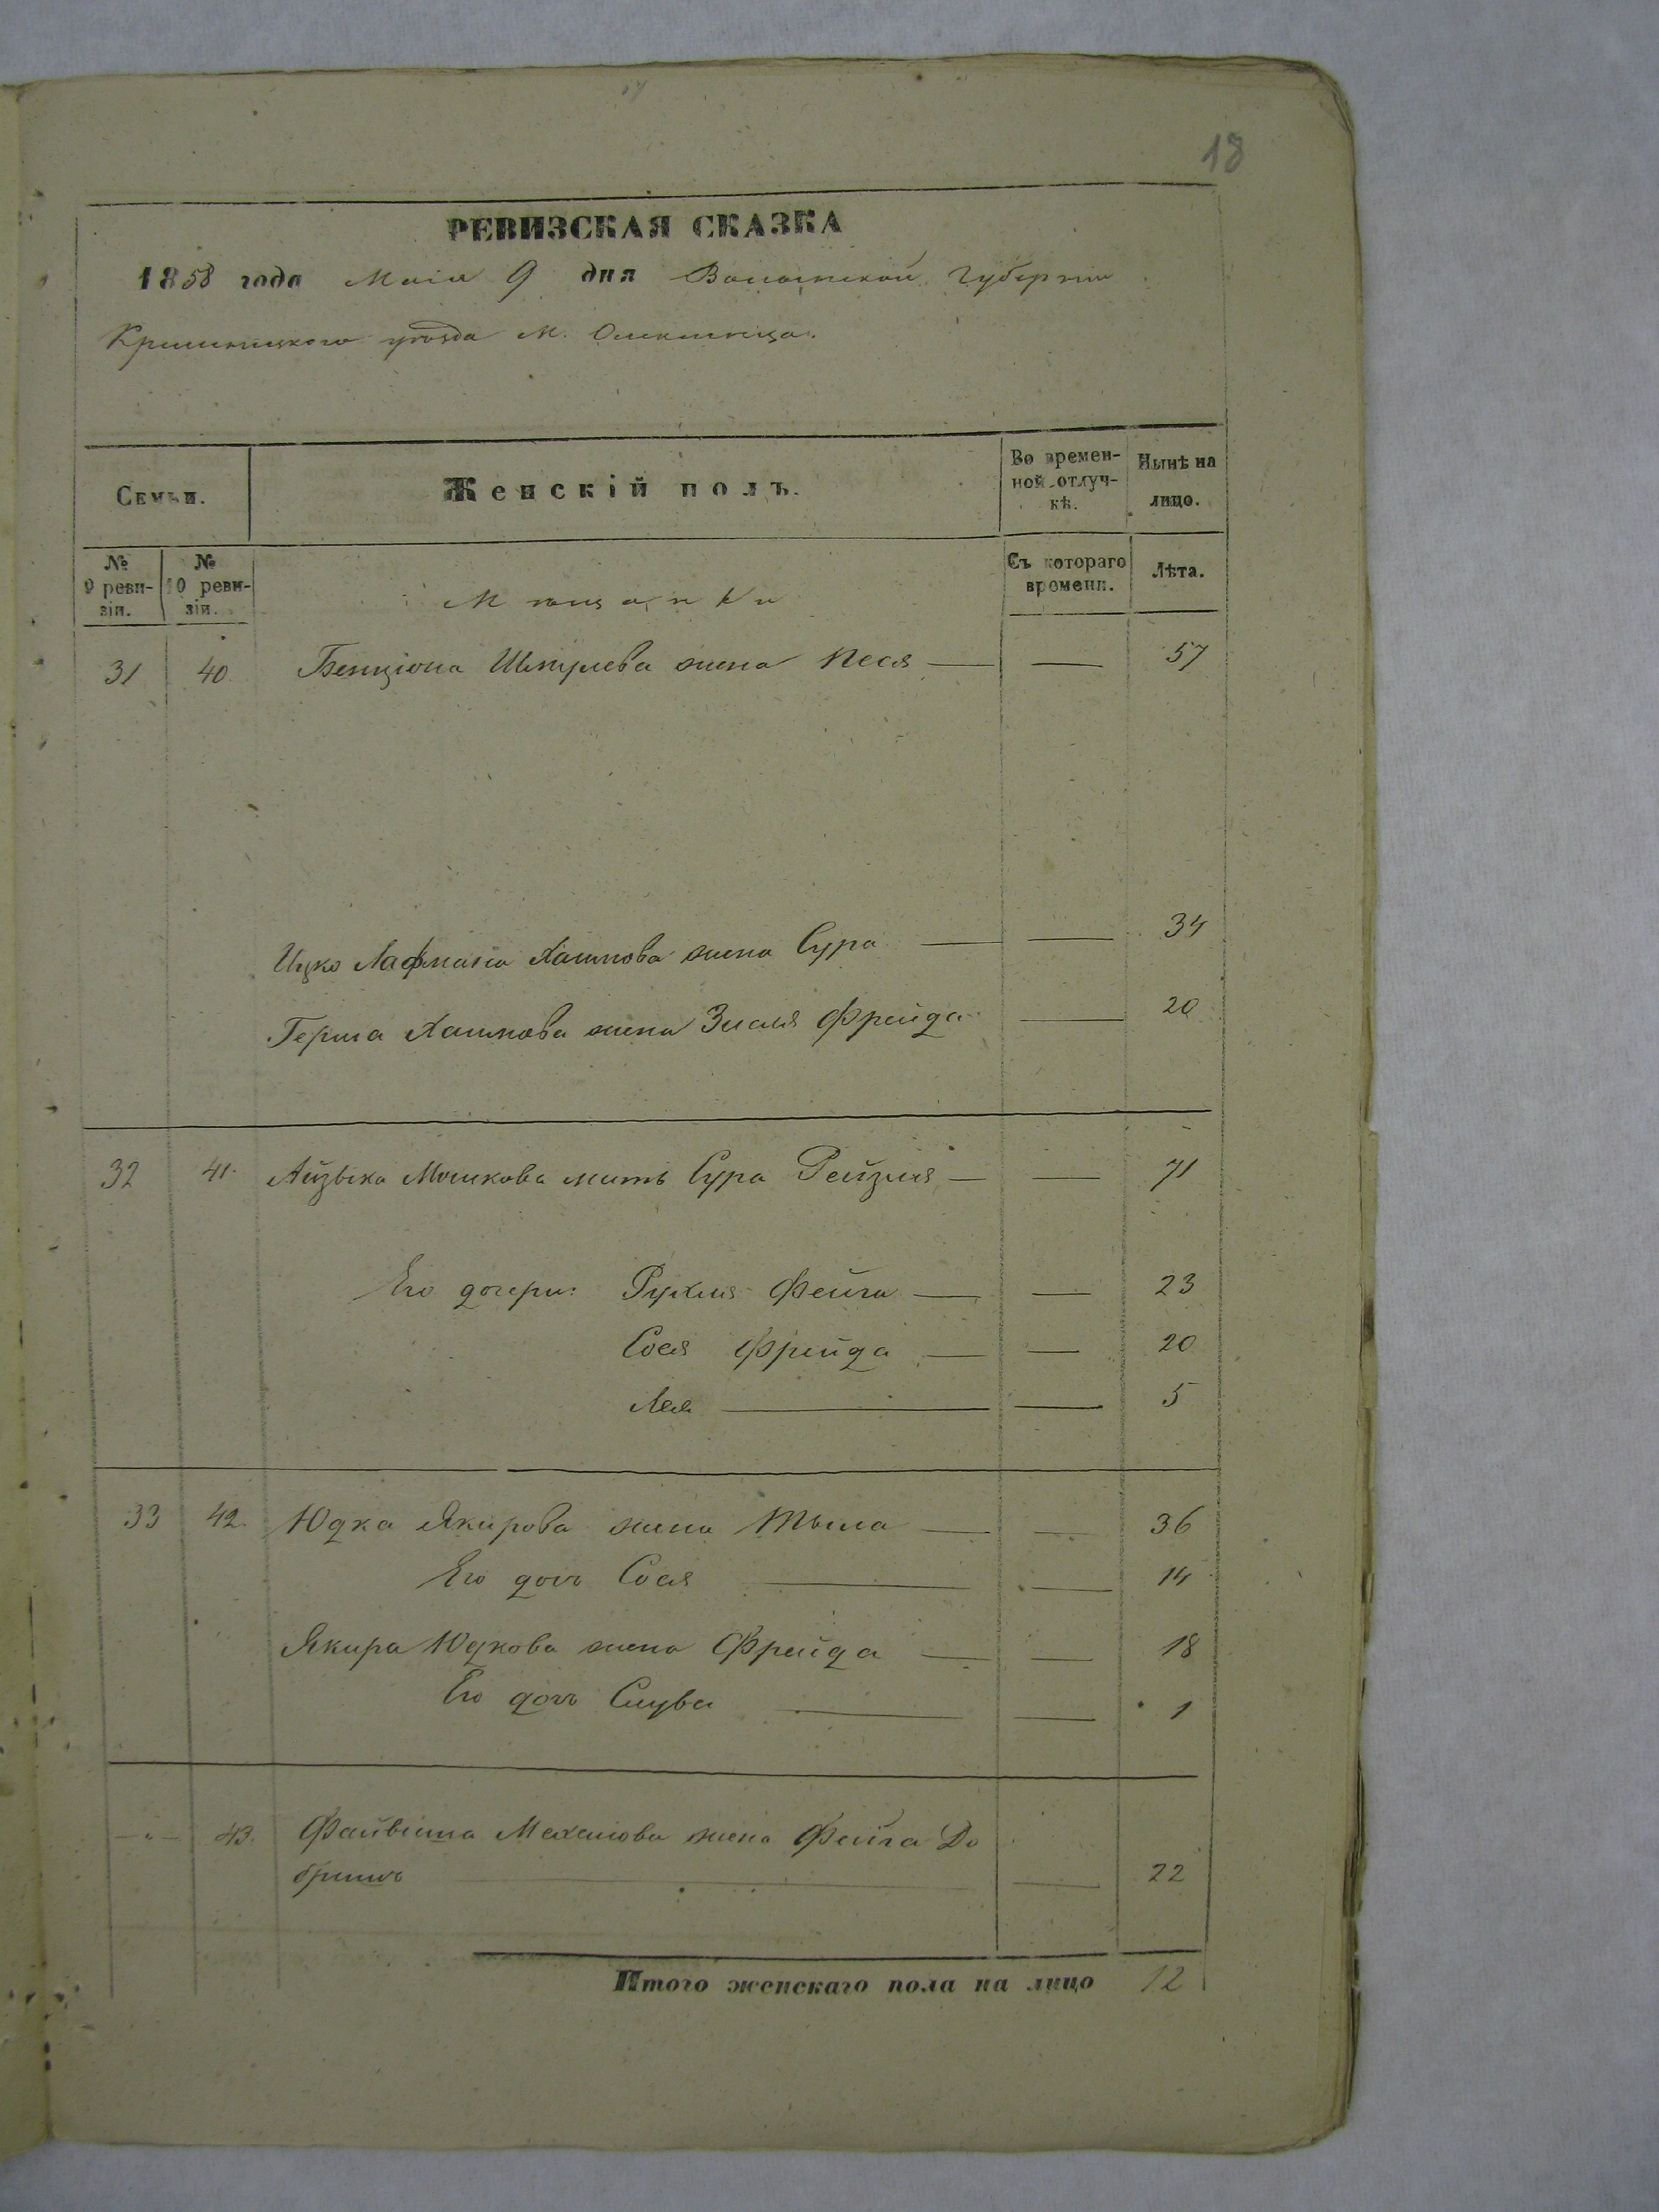 18
РЕВИЗСКАЯ СКАЗКА
1858 года Маія 9 дня Волынской Губерніи
Кременецкого уѣзда М. Олексинца.
Семьи.
Женскій полъ.
Во временной отлучкѣ.
Нынѣ на лицо.
№ 9 ревизіи.
№ 10 ревизіи.
Мѣщанки
Съ котораго времени.
Лѣта.
31 40. Бенціона Шмулева жена Песя — — 57
Ицко Лафмана Хаимова жена Сура — — 34
Герша Хаимова жена Зисля Фрейда — 20
32 41. Айзыка Мошкова мать Сура Рейзля — — 71
Его дочери: Рухля Фейга — — 23
Сося Фрейда — — 20
Лея — — 5
33 42. Юдка Якирова жена Тыла — — 36
Его дочь Сося — — 14
Якира Юдкова жена Фрейда — — 18
Его дочь Слува — — 1
— „ — 43. Файвиша Мехелова жена Фейга До
бришъ — — 22
Итого женскаго пола на лицо 12